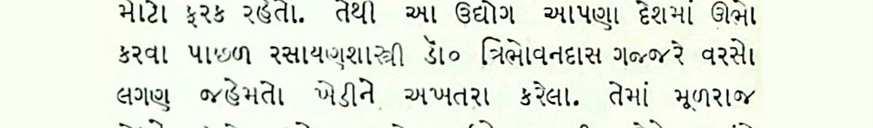 મોટો ફરક રહેતો. તેથી આ ઉદ્યોગ આપણા દેશમાં ઊભો
કરવા પાછળ રસાયણશાસ્ત્રી ડૉ૦ ત્રિભોવનદાસ ગજ્જરે વરસો
લગણ જહેમતો ખેડીને અખતરા કરેલા. તેમાં મૂળરાજ